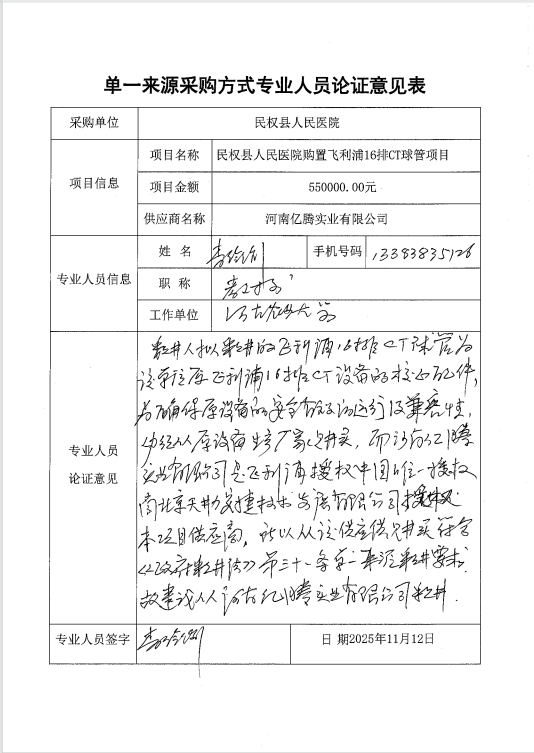 单一来源采购方式专业人员论证意见表
采购单位 民权县人民医院
项目信息
项目名称 民权县人民医院购置飞利浦16排CT球管项目
项目金额 550000.00元
供应商名称 河南亿腾实业有限公司
专业人员信息
姓 名 手机号码 13383835126
职 称
工作单位 河南农业大学
专业人员
论证意见
采购人拟采购的飞利浦16排CT球管为
该单位原飞利浦16排CT设备的核心配件,
为确保原设备的安全有效的运行及兼容性,
必须从原设备生产厂家采购, 而河南亿腾
实业有限公司是飞利浦授权中国唯一授权
商北京天 捷技术发展有限公司授权
本项目供应商, 所以从该供应商采购符合
《政府采购法》第三十一条单一来源采购要求.
故建议从河南亿腾实业有限公司采购.
专业人员签字
日 期2025年11月12日